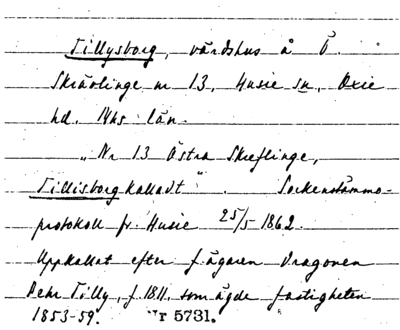 Tillysborg, värdshus å Ö.
Skrävlinge nr 13, Husie sn, Oxie
hd. Mhs län.
"Nr 13 Östra Skreflinge,
Tillisborg kalladt". Sockenstämmo-
protokoll fr. Husie 25/5 1862.
Uppkallat efter f. ägaren Dragonen
Pehr Tilly, f. 1811, som ägde fastigheten
1853-59. Nr 5731.